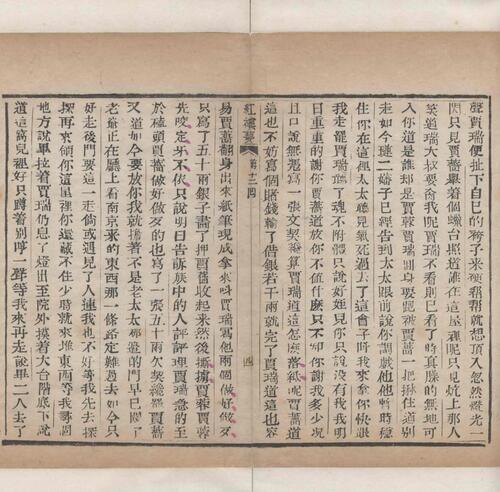 聲賈瑞便扯下自巳的褲子來硬帮帮就想頂入忽然燈光一
閃只見賈薔舉着個蠟台照道誰在這屋裡呢只見炕上那人
笑道瑞大叔要肏我呢賈瑞不看則巳看了時真臊的無地可
入你道是誰却是賈蓉賈瑞回身要跑被賈薔一把揪住道别
走如今璉二嬸子巳經告到太太跟前說你調戲他他暫時穩
住你在這裡太太聽見氣死過去了這會子叫我來拿你快跟
我走罷賈瑞聽了魂不附體只說好姪兒你只說没有我我明
日重重的謝你賈薔道放你不值什麽只不知你謝我多少况
且口說無憑寫一張文契纔算賈瑞道這怎麽落紙呢賈薔道
這也不妨寫個賭錢輸了借銀若干兩就完了賈瑞道這也容
紅樓夢 第十二囘 四
易賈薔翻身出來紙筆現成拿來叫賈瑞寫他兩個做好做歹
只寫了五十兩銀子畵了押賈薔收起來然後撕擄賈蓉賈蓉
先咬定牙不依只說明日告訴族中的人評評理賈瑞急的至
於磕頭賈薔做好做歹的也寫了一張五十兩欠契纔罷賈薔
又道如今要放你我就擔着不是老太太那邊的門早巳關了
老爺正在廳上看南京來的東西那一條路定難過去如今只
好走後門要這一走倘或遇見了人連我也不好等我先去探
探再來領你這屋裡你還藏不住少時就來堆東西等我尋個
地方說畢拉着賈瑞仍息了燈出至院外摸着大台階底下說
道這窩兒裡好只蹲着别哼一聲等我來再走說畢二人去了